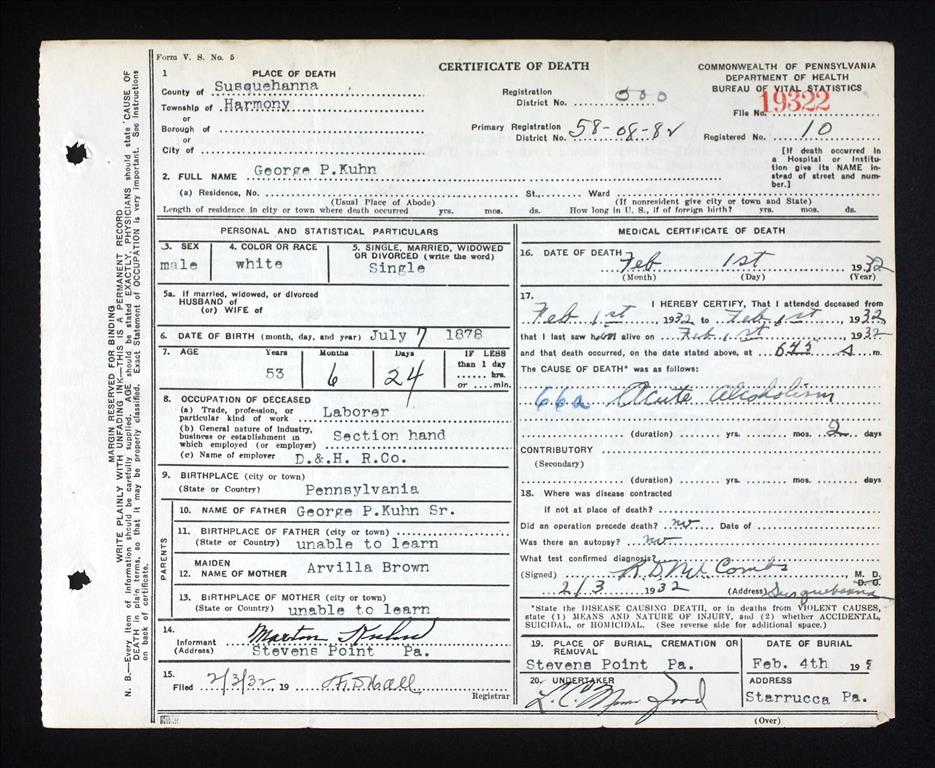 Form V. S. No. 5
CERTIFICATE OF DEATH
COMMONWEALTH OF PENNSYLVANIA
DEPARTMENT OF HEALTH
BUREAU OF VITAL STATISTICS
File No. 19322
Registered No. 10
[If death occurred in a Hospital or Institution give its NAME instead of street and number.]
1 PLACE OF DEATH
County of Susquehanna
Township of Harmony
or
Borough of
or
City of
Registration District No. 000
Primary Registration District No. 58-08-82
2. FULL NAME George P.Kuhn
(a) Residence, No. St., Ward
(Usual Place of Abode) (If nonresident give city or town and State)
Length of residence in city or town where death occurred yrs. mos. ds. How long in U. S., if of foreign birth? yrs. mos. ds.
PERSONAL AND STATISTICAL PARTICULARS
3. SEX
male
4. COLOR OR RACE
white
5. SINGLE, MARRIED, WIDOWED OR DIVORCED (write the word)
Single
5a. If married, widowed, or divorced
HUSBAND of
(or) WIFE of
6. DATE OF BIRTH (month, day, and year) July 7 1878
7. AGE Years Months Days IF LESS than 1 day
53 6 24 hrs. or min.
8. OCCUPATION OF DECEASED
(a) Trade, profession, or particular kind of work Laborer
(b) General nature of industry, business or establishment in which employed (or employer) Section hand
(c) Name of employer D.&H. R.Co.
9. BIRTHPLACE (city or town)
(State or Country) Pennsylvania
PARENTS
10. NAME OF FATHER George P.Kuhn Sr.
11. BIRTHPLACE OF FATHER (city or town)
(State or Country) unable to learn
MAIDEN
12. NAME OF MOTHER Arvilla Brown
13. BIRTHPLACE OF MOTHER (city or town)
(State or Country) unable to learn
14.
Informant Kuhn
(Address) Stevens Point Pa.
15.
Filed 2/3/32, 19 Hall
Registrar
MEDICAL CERTIFICATE OF DEATH
16. DATE OF DEATH Feb 1st 1932
(Month) (Day) (Year)
17. I HEREBY CERTIFY, That I attended deceased from
Feb 1st, 1932 to Feb 1st, 1932
that I last saw him alive on Feb 1st, 1932
and that death occurred, on the date stated above, at 645 a m.
The CAUSE OF DEATH* was as follows:
66a Acute Alcoholism
(duration) yrs. mos. 2 days
CONTRIBUTORY
(Secondary)
(duration) yrs. mos. days
18. Where was disease contracted
if not at place of death?
Did an operation precede death? no Date of
Was there an autopsy? no
What test confirmed diagnosis?
(Signed) McCombs M. D.
D. O.
2/3 1932 (Address) Susquehanna
*State the DISEASE CAUSING DEATH, or in deaths from VIOLENT CAUSES, state (1) MEANS AND NATURE OF INJURY, and (2) whether ACCIDENTAL, SUICIDAL, or HOMICIDAL. (See reverse side for additional space.)
19. PLACE OF BURIAL, CREMATION OR REMOVAL
Stevens Point Pa.
DATE OF BURIAL
Feb. 4th 19
20. UNDERTAKER
L. C.
ADDRESS
Starrucca Pa.
(Over)
MARGIN RESERVED FOR BINDING
WRITE PLAINLY WITH UNFADING INK—THIS IS A PERMANENT RECORD
N. B.—Every item of information should be carefully supplied. AGE should be stated EXACTLY. PHYSICIANS should state CAUSE OF
DEATH in plain terms, so that it may be properly classified. Exact Statement of OCCUPATION is very important. See instructions
on back of certificate.